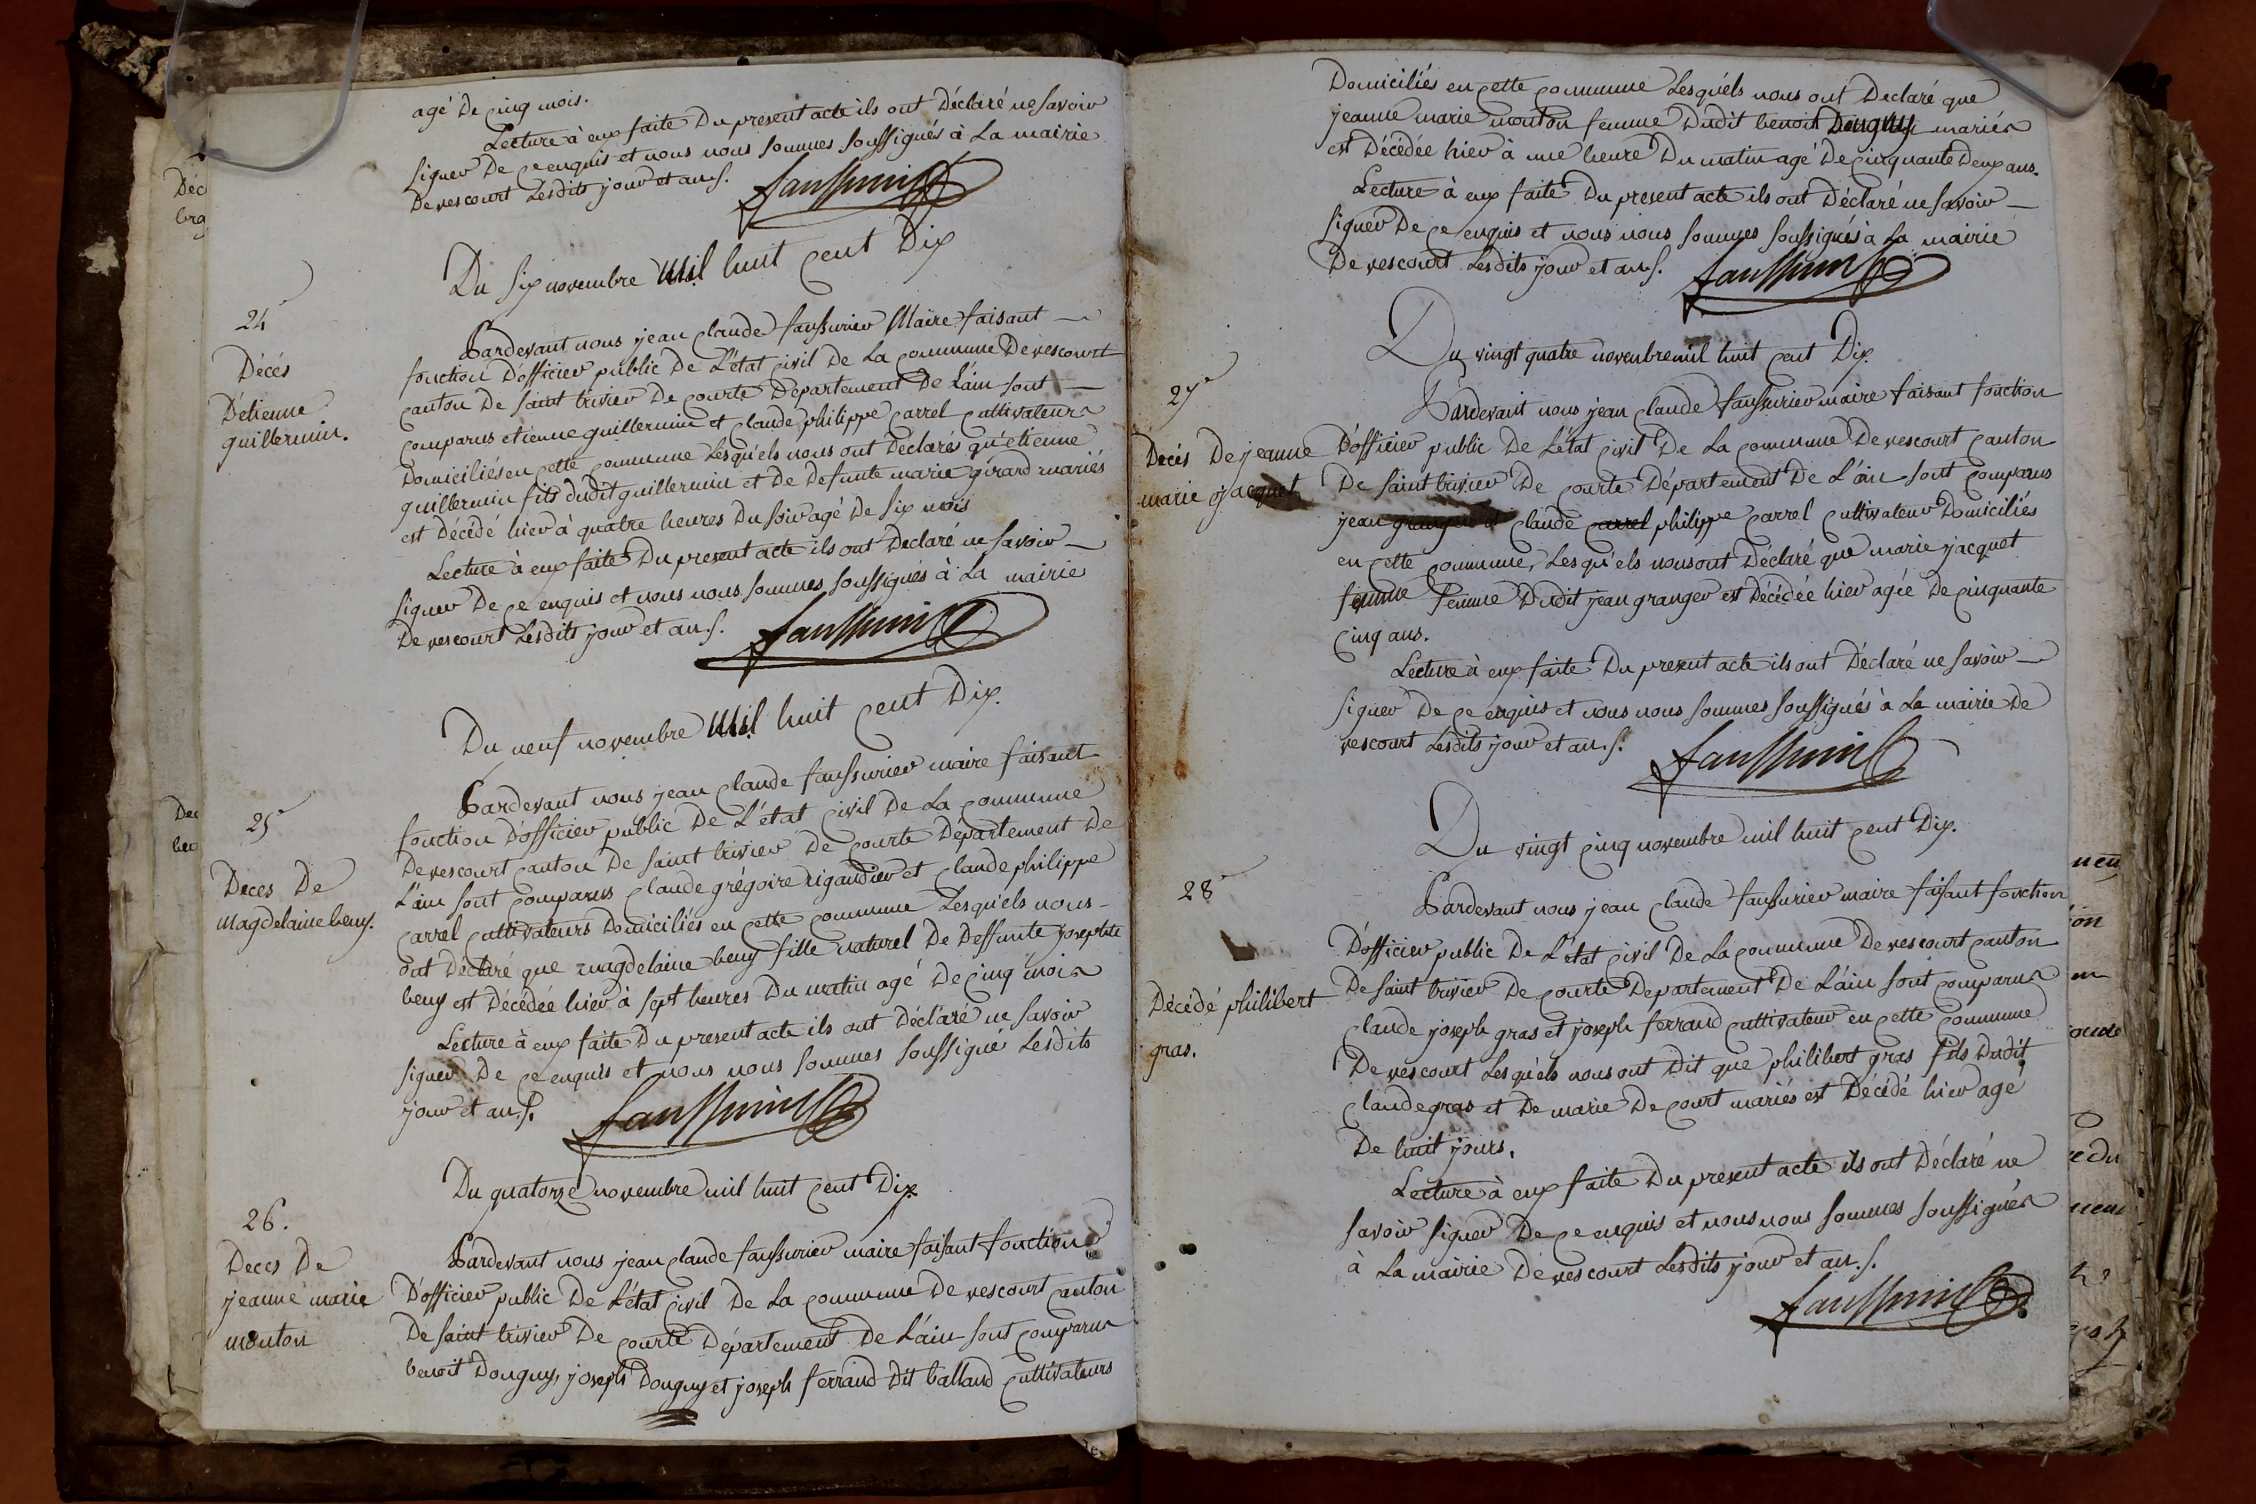 agé De cinq mois.
Lecture à eux faite Du present acte ils ont Déclaré ne savoir
signer De ce enquis et nous nous sommes soussignés à La mairie
De vescourt Lesdits jour et an.
Du six novembre Mil huit cent Dix
24
Décés
D'étienne
guillermin.
Pardevant nous jean claude faussurier Maire faisant
fonction D'officier public De L'état civil De La commune De vescourt
canton De saint trivier De courte Département De L'ain sont
comparus etienne guillermin et claude philippe carrel cultivateurs
Domiciliés en cette commune Lesquéls nous ont Déclarés qu'etienne
guillermin fils dudit guillermin et De defunte marie girard mariés
est Décédé hier à quatre heures Du soir agé De six mois
Lecture à eux faite Du present acte ils ont Déclaré ne savoir
signer De ce enquis et nous nous sommes soussignés à La mairie
De vescourt Lesdits jour et an.
Du neuf novembre Mil huit cent Dix.
25
Deces De
Magdelaine beny.
Pardevant nous jean claude faussurier maire faisant
fonction D'officier public De L'état civil De La commune
De vescourt canton De saint trivier De courte Département De
L'ain sont comparus claude grégoire rigaudier et claude philippe
carrel cultivateurs Domiciliés en cette commune Lesquéls nous
ont Déclaré que magdelaine beny fille naturel De Deffunte josephte
beny est Décédée hier à sept heures Du matin agé De cinq mois
Lecture à eux faite Du present acte ils ont Déclaré ne savoir
signer De ce enquis et nous nous sommes soussigné Lesdits
jour et an.
Du quatorze novembre mil huit cent Dix
26.
Deces De
jeanne marie
monton
Pardevant nous jean claude faussurier maire faisant fonction
D'officier public De L'état civil De La commune De vescourt canton
De saint trivier De courte Département De L'ain sont comparus
benoit Donguy, joseph Donguy et joseph ferrand Dit balland cultivateurs
Domiciliés en cette commune Lesquéls nous ont Declaré que
jeanne marie monton femme Dudit benoit Donguy mariés
est Décédée hier à une heure Du matin agé De cinquante Deux ans.
Lecture à eux faite Du present acte ils ont Déclaré ne savoir
signer De ce enquis et nous nous sommes soussignés à La mairie
De vescourt Lesdits jour et an.
Du vingt quatre novembre mil huit cent Dix.
27
Decés De jeanne
marie jacquet
Pardevant nous jean claude faussurier maire faisant fonction
D'officier public De L'état civil De La commune De vescourt canton
De saint trivier De courte Département De L'ain sont comparus
jean granger et claude carrel philippe carrel cultivateur Domiciliés
en cette commune, Lesqu'els nous ont Déclaré que marie jacquet
femme femme Dudit jean granger est Décédée hier agée De cinquante
cinq ans.
Lecture à eux faite Du present acte ils ont Déclaré ne savoir
signer De ce enquis et nous nous sommes soussignés à La mairie De
vescourt Lesdits jour et an.
Du vingt cinq novembre mil huit cent Dix.
28
Décédé philibert
gras.
Pardevant nous jean claude faussurier maire faisant fonction
D'officier public De L'état civil De La commune De vescourt canton
De saint trivier De courte Departement De L'ain sont comparus
claude joseph gras et joseph ferrand cultivateur en cette commune
De vescourt Lesquéls nous ont Dit que philibert gras fils Dudit
claude gras et De marie De court mariés est Décédé hier agé
De huit jours.
Lecture à eux faite Du present acte ils ont Déclaré ne
savoir signer De ce enquis et nous nous sommes soussignés
à La mairie De vescourt Lesdits jour et an.